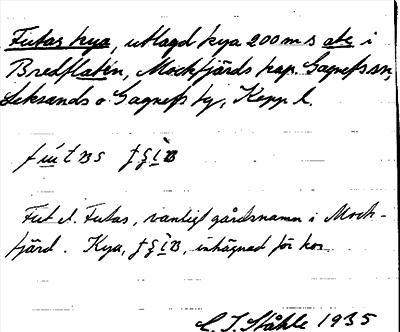 Futas kya, utlagd kya 200 m s ate i
Bredflaten, Mockfjärds kap. Gagnefs sn,
Leksands o Gagnefs tg, Kopp. l.
Fut el. Futas, vanligt gårdsnamn i Mock-
fjärd. Kya, inhägnad för kor
C. I. Ståhle 1935